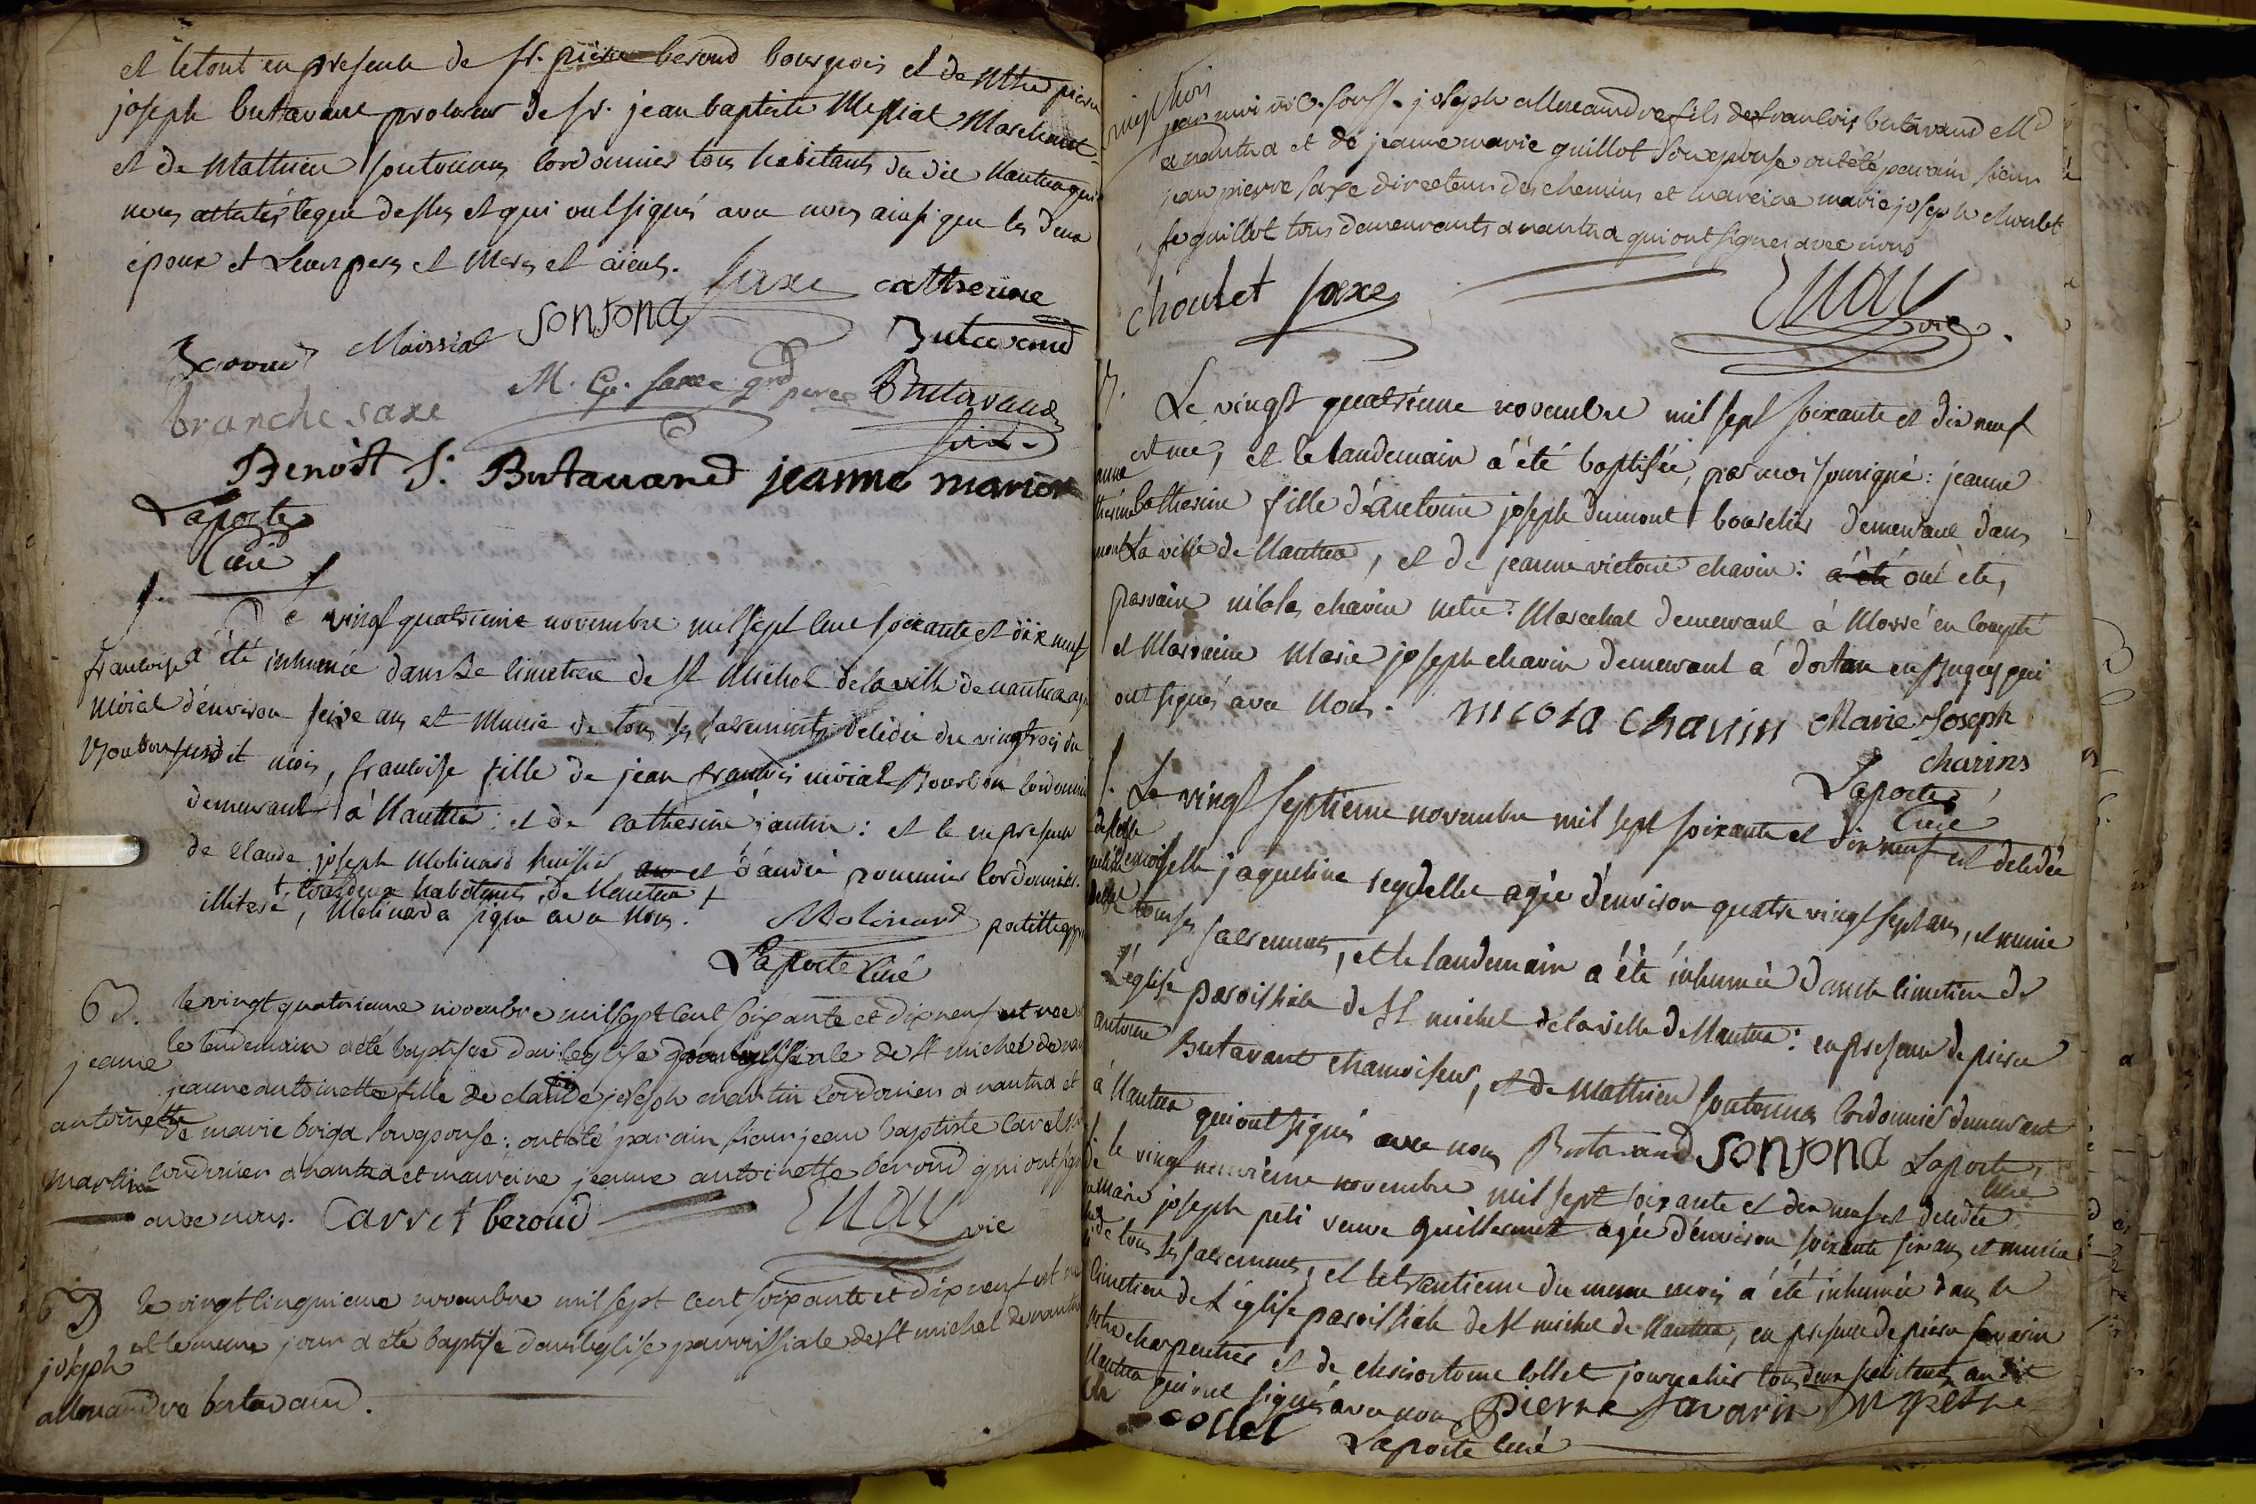 et le tout en presence de sr. pierre beroud bourgeois et de Mtre pierre
joseph butavant procureur de sr. jean baptiste Messiat Marchant
et de Mathieu sontonna cordonnier tous habitants du dit Nantua qui
nous attestés le que dessus et qui ont signés avec nous ainsi que les deux
époux et Leurs peres et Meres et aieuls.
Saxe catherine
Beroud Moissiat sontona Butavand
M. Cp. saxe grd pere Butavand
branche saxe
Benoist S. Butauand jeanne marion
Laporte
Curé
Le vingt quatrieme novembre mil sept cent soixante et dix neuf
françoise a été inhumée dans le cimetiere de st Michel de la ville de nantua
nivial d'environ seize ans et Munie de tous ses sacrements décédée du vingt trois du
dit mois, françoise fille de jean françois nivial Bourbon cordonnier
demeurant à Nantua: et de catherine jantin: et ce en presence
de Claude joseph Molinard huissier et d'andré pommier cordonnier
tous deux habitants de Nantua
illiteré, Molinard a signé avec Nous. Molinard
Laporte Curé
6 B. le vingt quatrieme novembre mil sept cent soixante et dix neuf est née
le lendemain a été baptisée dans leglise paroissiale de st michel de
jeanne
jeanne antoinette fille de claude joseph martin cordonnier a nantua et
antoinette de marie boiga son epouse; ont été parain sieur jean baptiste
martin cordonnier a nantua et mareine jeanne antoinette beroud qui ont
avec nous. Carret beroud
vic
6 B le vingt cinquieme novembre mil sept cent soixante et dix neuf est
et le meme jour a été baptisé dans leglise parroissiale de st michel de nantua
joseph
allexandre butavand.
par moi vic. souss. joseph allexandre fils de françois butavand Md
a nantua et de jeanne marie guillot son epouse ont été parain sieur
jean pierre saxe directeur des chemins et mareine marie joseph choulet
fe guillot tous demeurants a nantua qui ont signés avec nous
choulet saxe
vic
Le vingt quatrieme novembre mil sept soixante et dix neuf
est née, et le landemain a été baptisée, par moi sousigné: jeanne
catherine fille d'Antoine joseph dumont bourelier demeurant dans
La ville de Nantua, et de jeanne victoire chavin: a été ont étés
parrain nicolas chavin metre Marechal demeurant à en comté
et Marraine Marie joseph chavin demeurant a dortan en Bugey qui
ont signés avec Nous. nicola chavin Marie Joseph
charins
Laporte
Curé
Le vingt septieme novembre mil sept soixante et dix neuf est décédée
demoiselle jaqueline sequelle agée d'environ quatre vingt sept ans, et munie
tous ses sacrements, et le landemain a été inhumée dans le cimetiere de
L'église paroissiale de st michel de la ville de Nantua: en presence de pierre
antoine Butavant chamoiseur, et de Mathieu sontonna cordonnier demeurant
à Nantua qui ont signés avec nous Butavand sontona Laporte
Curé
le vingt neuvieme novembre mil sept soixante et dix neuf est décédée
marie joseph peti veuve guillermet agée d'environ soixante six ans et munie
de tous ses sacrements, et le trantieme du meme mois a été inhumée dans le
cimetiere de L'église paroissiale de st michel de Nantua, en presence de pierre savarin
metre charpentier et de chrisostome collet journalier tous deux habitants audit
Nantua qui ont signés avec nous Pierre Savarin
collet
Laporte Curé